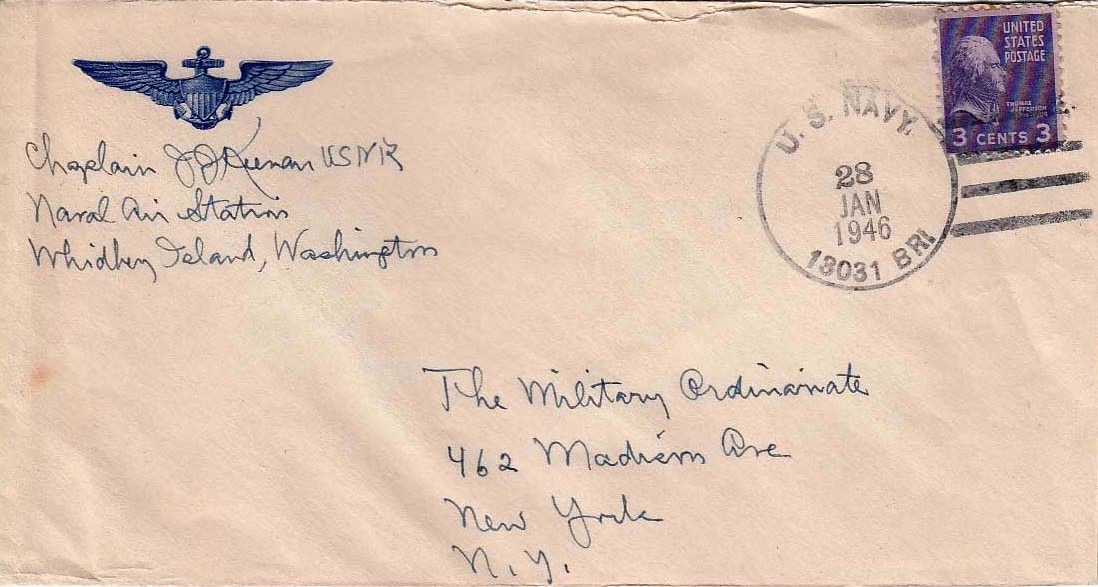 Chaplain J J Keenan USNR
Naval Air Station
Whidbey Island, Washington
U. S. NAVY.
28
JAN
1946
13031 BR.
UNITED
STATES
POSTAGE
THOMAS
JEFFERSON
3 CENTS 3
The Military Ordinariate
462 Madison Ave
New York
N.Y.